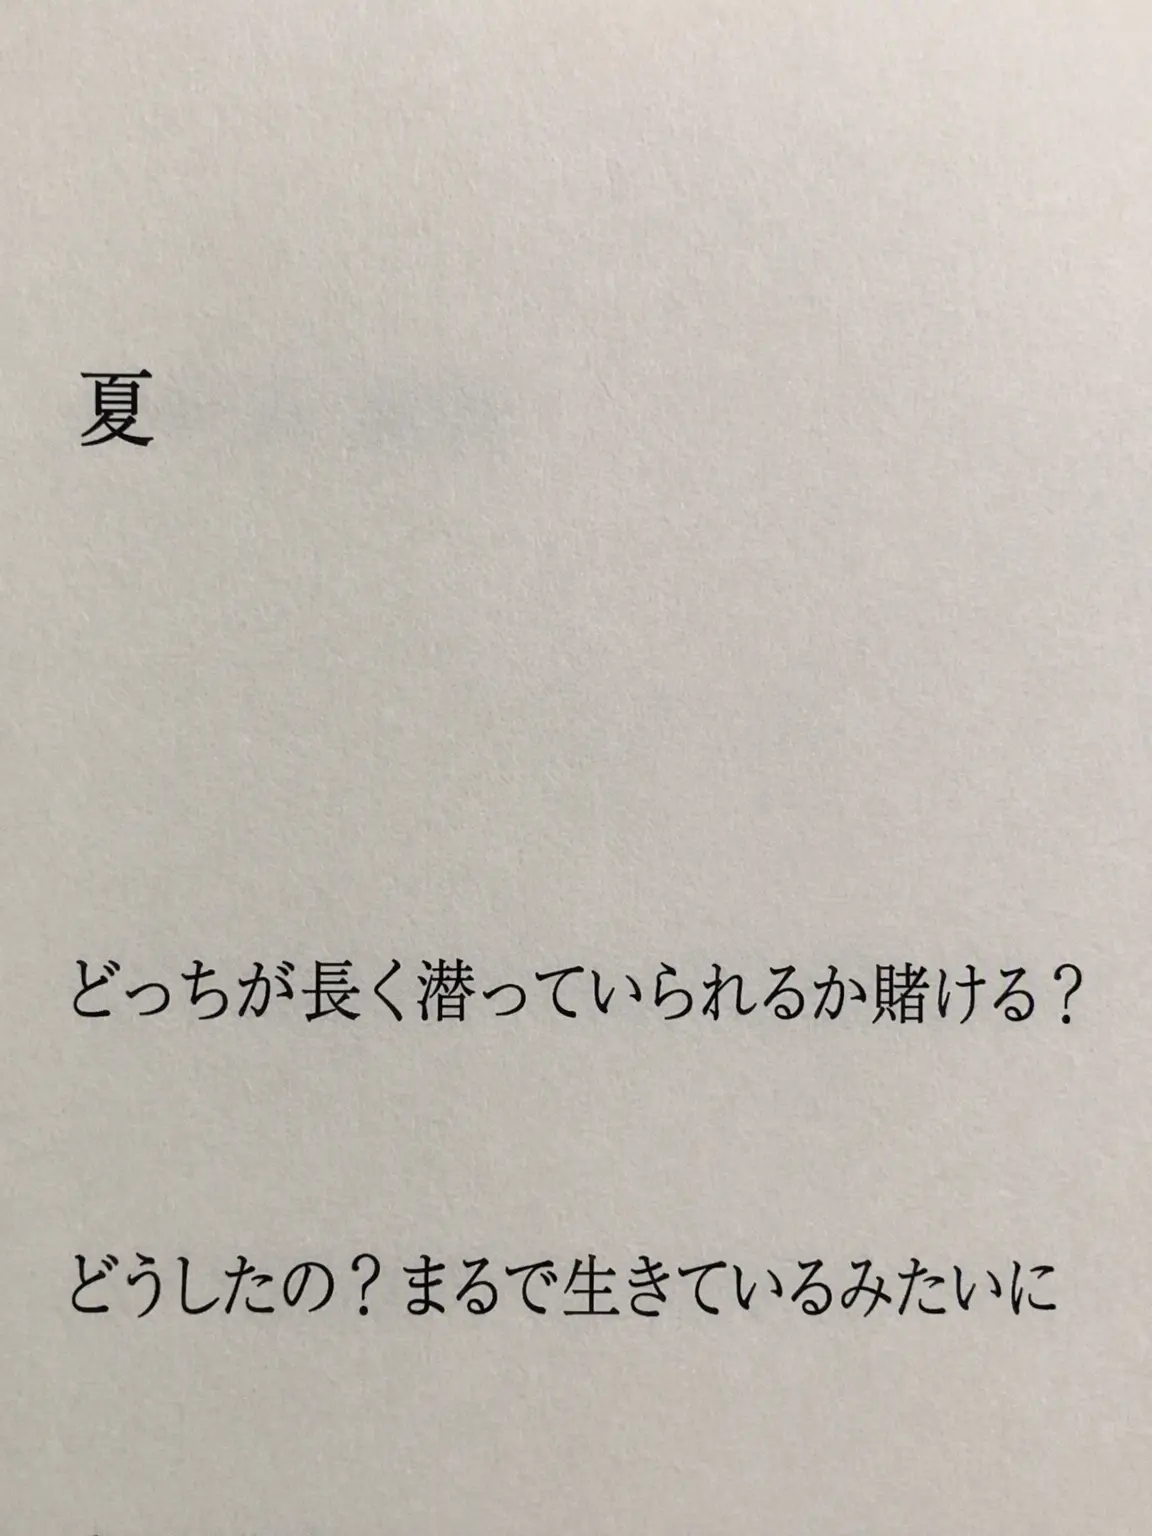 夏
どっちが長く潜っていられるか賭ける？
どうしたの？まるで生きているみたいに